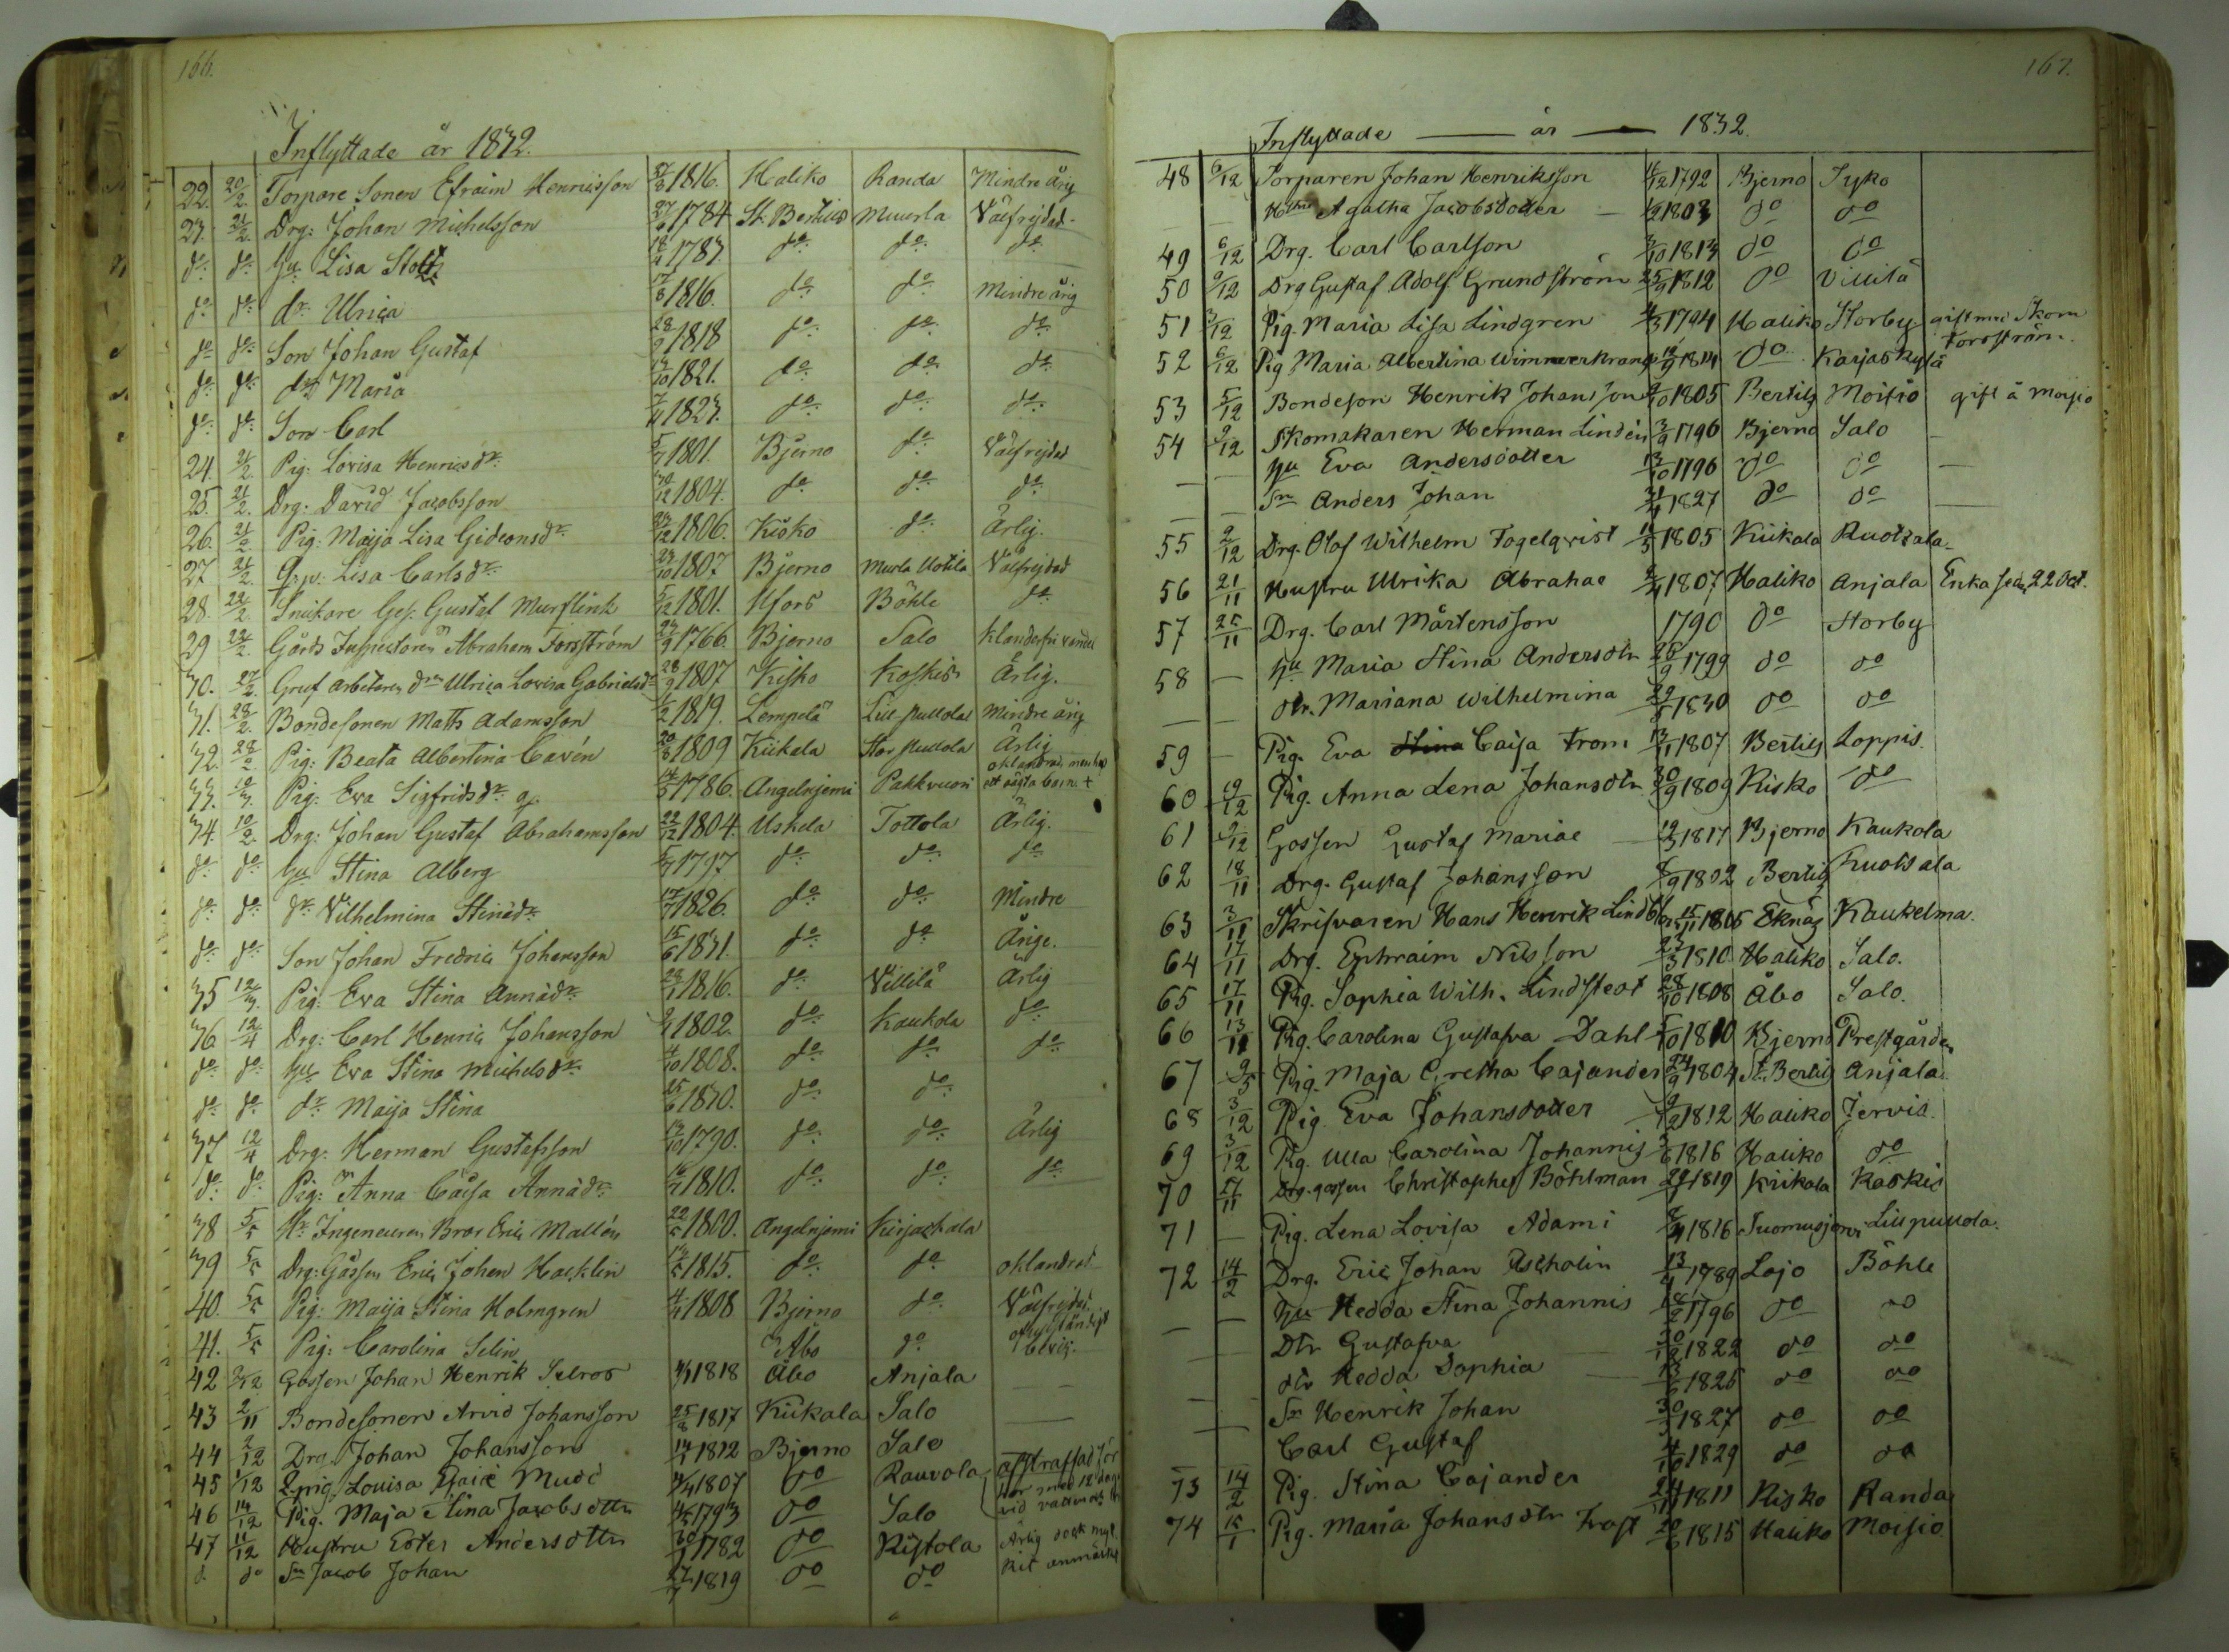 166.
Inflyttade år 1832.
22. 20/2. Torpare Sonen Efraim Henricsson 1816. Haliko Randa Mindre årig
23. 21/2. Drg: Johan Michelsson 1784 St. Bertils Muurla Välfrejdad.
do. do. Hu Lisa Stolt 1783. do. do. do.
do. do. dr. Ulrica 1816. do. do. Mindre årig
do. do. Son Johan Gustaf 28/9 1818 do. do. do.
do. do. dr. Maria 1821. do. do. do.
do. do. Son Carl 1823. do. do. do.
24. 21/2. Pig: Lovisa Henricsdr. 1801. Bjerno do. Välfrejdad
25. 21/2. Drg: David Jacobsson 30/12 1804. do. do. do.
26. 21/2. Pig: Maija Lisa Gideonsdr. 1806. Kisko do. Ärlig.
27 21/2. Lisa Carlsdr. 1807. Bjerno Murla Uotila Välfrejdad
28. 22/2. Snickare Ges. Gustaf Murflink 5/12 1801. Hfors Böhle do.
29 22/2. Gårds Inspectoren Abraham Forsström 1766. Bjerno Salo Klanderfri vandel
30. 27/2. Gruf arbetaren dr. Ulrica Lovisa Gabrielsdr. 28/9 1807 Kisko Koskis Ärlig.
31. 28/2. Bondesonen Matts Adamsson 1/2 1819. Lempelä Lill pullola Mindre årig
32. 28/2. Pig: Beata Albertina Cavén 20/8 1809 Kiikala Stor pullola Ärlig
33. Pig: Eva Sigfridsdr. 1786. Angelnjemi Pakkvuori oklandrad, men haft ett oägta barn +
34. Drg: Johan Gustaf Abrahamsson 22/12 1804. Uskela Tottola Ärlig.
do. do. Hu Stina Alberg 1797 do. do. do.
do. do. dr. Vilhelmina Stinadr. 17/7 1826. do. do. Mindre
do. do. Son Johan Fredric Johansson 15/6 1831. do. do. Årige.
35 12/3. Pig: Eva Stina Annadr. 1816. do. Villilä Ärlig
36 12/4 Drg: Carl Henric Johansson 1802. do. Kaukola do.
do. do. Hu Eva Stina Michelsdr. 4/10 1808. do. do. do.
do. do. dr. Maija Stina 1830. do. do.
37 12/4 Drg: Herman Gustafsson 13/10 1790. do. do. Ärlig
do. do. Pig: Anna Caisa Annadr. 1810. do. do. do.
38 5/5 Hr. Ingeneuren Bror Eric Mallén 22/5 1800. Angelnjemi Kirjackala
39 5/5 Drg: Gossen Eric Johan Hacklin 1815. do. do. oklandrad
40. 5/5 Pig: Maija Stina Holmgren 1808 Bjerno do. Välfrejdad.
41. 5/5 Pig: Carolina Selin Åbo do.
42 2/12 Gossen Johan Henrik Selroos 1818 Åbo Anjala
43 2/11 Bondesonen Arvid Johansson 25/8 1817 Kiikala Salo
44 2/12 Drg. Johan Johansson 1812 Bjerno Salo
45 1/12 Louisa 1807 do Rauvola afstraffad för
46 14/12 Pig. Maja Stina Jacobsdttr 1793 do Salo
47 11/12 Hustru Ester Andersdttr 1782 do Ristola Ärlig dock
d. do Sn Jacob Johan 1819 do do
167.
Inflyttade — år — 1832.
48 6/12 Torparen Johan Henriksson 1792 Bjerno Tyko
Agatha Jacobsdotter — 1803 do do
49 6/12 Drg. Carl Carlson 3/10 1813 do do
50 9/12 Drg Gustaf Adolf Grundström 25/9 1812 do Villilä
51 3/12 Pig. Maria Lisa Lindgren 1794 Haliko Storby gift med Skom Forsström.
52 6/12 Pig Maria Albertina Wimmerkranz 1814 do Karjaskylä
53 5/12 Bondeson Henrik Johansson 1805 Bertils Moisio gift å Moisio
54 9/12 Skomakaren Herman Lindén 3/9 1796 Bjerno Salo
Hu Eva Andersdotter 13/10 1796 do do
Sn Anders Johan 1827 do do
55 2/12 Drg. Olof Wilhelm Fogelqvist 1805 Kiikala Ruotsala
56 21/11 Hustru Ulrika Abrahae 1807 Haliko Anjala Enka sedan 22 Oct.
57 25/11 Drg. Carl Mårtensson 1790 do Storby
58 Hu Maria Stina Andersdtr 1799 do do
dtr. Mariana Wilhelmina 1830 do do
59 Pig. Eva Stina Caisa From 13/11 1807 Bertils Loppis.
60 19/12 Pig. Anna Lena Johansdtr 30/9 1809 Kisko do
61 9/12 Gossen Gustaf Mariae 1817 Bjerno Kaukola
62 18/11 Drg. Gustaf Johansson 1802 Bertils Ruotsala
63 3/11 Skrifvaren Hans Henrik 15/11 1805 Eknäs Kaukelma.
64 17/11 Drg. Ephraim Nilsson 23/3 1810 Haliko Salo.
65 17/11 Pig. Sophia Wilh. Lindstedt 28/10 1808 Åbo Salo.
66 13/11 Pig. Carolina Gustafva Dahl 1810 Bjerno Prestgården
67 9/5 Pig. Maja Gretha Cajander 24/9 1804 St. Bertils Anjala.
68 3/12 Pig. Eva Johansdotter 1812 Haliko Jervis.
69 3/12 Pig. Ulla Carolina Johannis 1816 Haliko do
70 17/11 Drg. gossen Christopher Böhlman 1819 Kiikala Koskis
71 Pig. Lena Lovisa Adami 1816 Suomusjervi Lillpullola.
72 14/2 Drg. Eric Johan Ascholin 13/4 1789 Lojo Böhle
Hu Hedda Stina Johannis 1796 do do
Dtr Gustafva 1822 do do
dtr Hedda Sophia 1825 do do
Sn Henrik Johan 1827 do do
Carl Gustaf 4/10 1829 do do
73 14/2 Pig. Stina Cajander 24/11 1811 Kisko Randa
74 15/1 Pig. Maria Johansdtr Frost 20/6 1815 Haliko Moisio